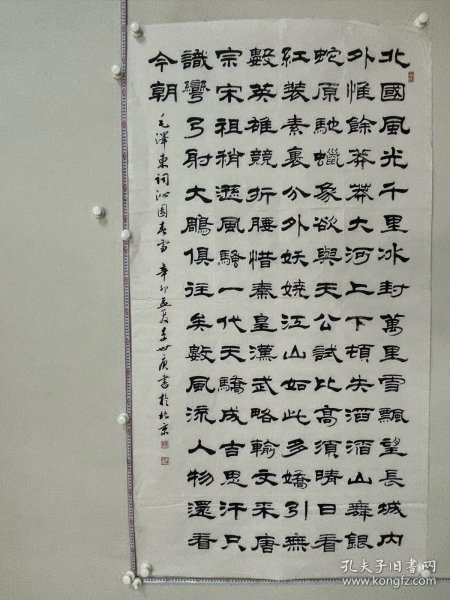 北國風光千里冰封萬里雪飄望長城內
外惟餘莽莽大河上下頓失滔滔山舞銀
蛇原馳蠟象欲與天公試比高須晴日看
紅裝素裹分外妖嬈江山如此多嬌引無
數英雄競折腰惜秦皇漢武略輸文采唐
宗宋祖稍遜風騷一代天驕成吉思汗只
識彎弓射大鵰俱往矣數風流人物還看
今朝
毛澤東詞沁園春雪辛卯孟夏李世庚書於北京
孔夫子旧书网
www.kongfz.com